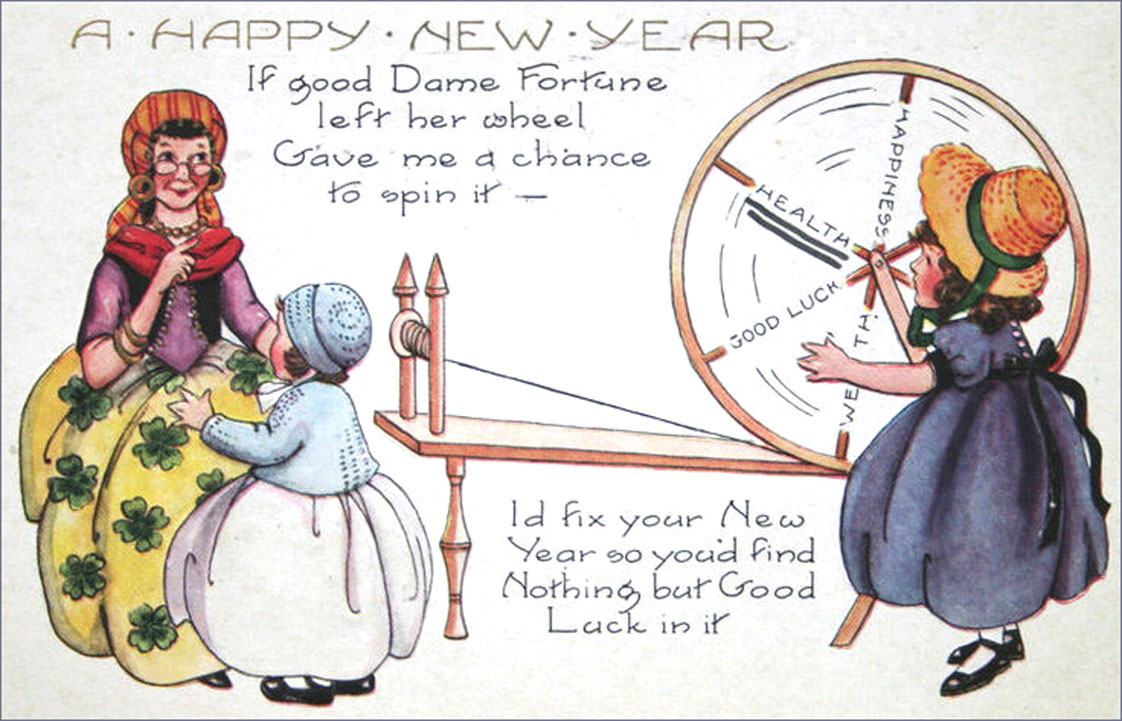 A·HAPPY·NEW·YEAR
If good Dame Fortune
left her wheel
Gave me a chance
to spin it —
HAPPINESS
HEALTH
GOOD LUCK
WE TH
Id fix your New
Year so you'd find
Nothing but Good
Luck in it